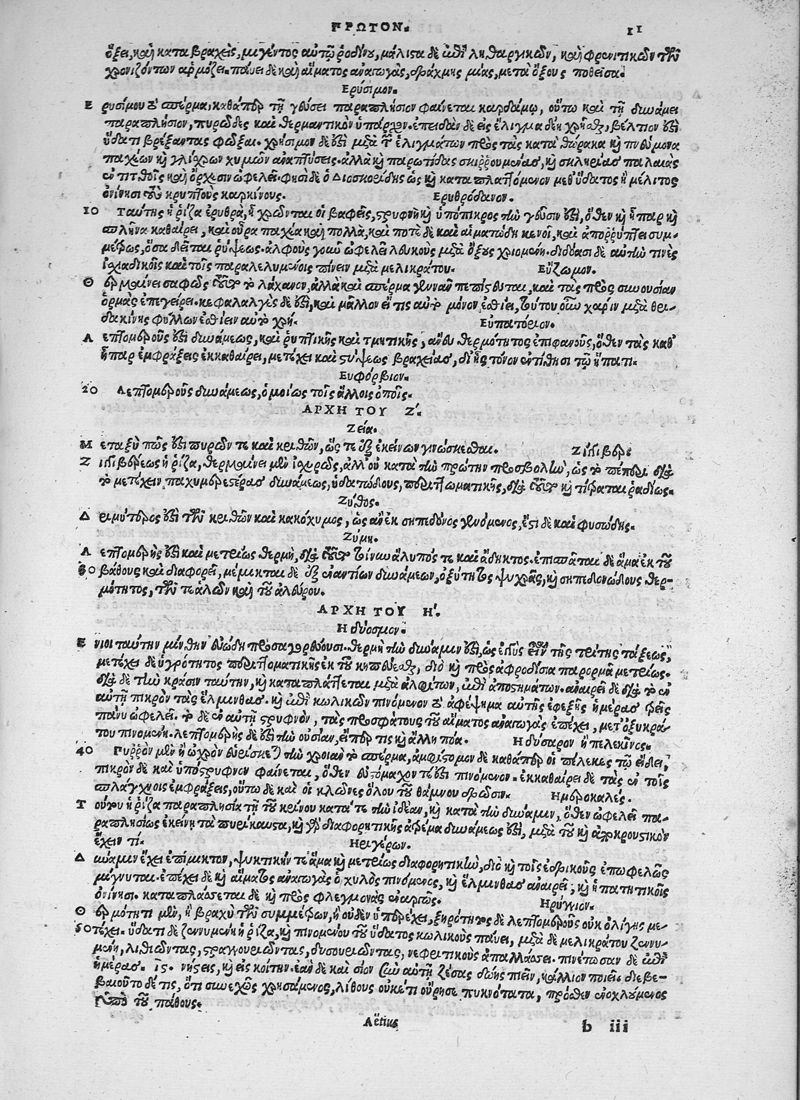 ΠΡΩΤΟΝ. 11
ὄξει, καὶ καταβραχεὶς, μιγέντος αὐτῷ ῥοδίνου, μάλιστα δὲ ἐπὶ ληθαργικῶν, καὶ φρενιτικῶν τῶν
χρονιζόντων ἁρμόζει. παύει δὲ καὶ αἵματος ἀναγωγὰς, δραχμῆς μιᾶς, μετὰ ὄξους ποθεῖσα.
Ερύσιμον.
Ε ρυσίμου τὸ σπέρμα, καθάπερ τῇ γεύσει παραπλήσιον φαίνεται καρδάμῳ, οὕτω καὶ τῇ δυνάμει
παραπλήσιον, πυρῶδες καὶ θερμαντικὸν ὑπάρχον. ἐπειδὰν δὲ εἰς ἔλιγμα δέῃ χρῆσθαι, βέλτιον ἐστὶν
ὕδατι βρέξαντας φῶξαι. χρήσιμον δὲ ἐστὶ μετὰ τῶν ἐλιγμάτων πρὸς τὰς κατὰ θώρακα καὶ πνεύμονα
παχέων καὶ γλίσχρων χυμῶν ἀναπτύσεις. ἀλλὰ καὶ παρωτίδας σκιῤῥουμένας, καὶ σκληρίας παλαιὰς
ἐν τιτθοῖς καὶ ὄρχεσιν ὠφελεῖ. φησὶ δὲ ὁ Διοσκορίδης ὡς καὶ καταπλαττόμενον μεθ' ὕδατος ἢ μέλιτος
ὀνίνησι τοὺς κρυπτοὺς καρκίνους. Ερυθρόδανον.
10 Ταύτης ἡ ῥίζα ἐρυθρὰ, ᾗ χρῶνται οἱ βαφεῖς, στρυφνὴ καὶ ὑπόπικρος τὴν γεῦσιν ἐστὶν, ὅθεν καὶ ἧπαρ καὶ
σπλῆνα καθαίρει, καὶ οὖρα παχέα καὶ πολλὰ, καὶ ποτὲ δὲ καὶ αἱματώδη κενοῖ, καὶ ἀποῤῥύπτει συμ-
μέτρως, ὅσα δεῖται ῥύψεως. ἀλφοὺς γοῦν ὠφελεῖ λευκοὺς μετὰ ὄξους χριομένη. διδόασι δὲ αὐτὴν τινὲς
ἰσχιαδικοῖς καὶ τοῖς παραλελυμένοις πίνειν μετὰ μελικράτου. Εὔζωμον.
Θ ερμαίνει σαφῶς τοῦτο τὸ λάχανον, ἀλλὰ καὶ σπέρμα γεννᾶν πεπίστευται, καὶ τὰς πρὸς συνουσίαν
ὁρμὰς ἐπεγείρει. κεφαλαλγὲς δὲ ἐστὶ, καὶ μᾶλλον εἴ τις αὐτὸ μόνον ἐσθίει, τούτου οὖν χάριν μετὰ θρι-
δακίνης φύλλων ἐσθίειν αὐτὸ χρή. Εὐπατόριον.
Λ επτομεροῦς ἐστὶ δυνάμεως, καὶ ῥυπτικῆς καὶ τμητικῆς, ἄνευ θερμότητος ἐπιφανοῦς, ὅθεν τὰς καθ'
ἧπαρ ἐμφράξεις ἐκκαθαίρει, μετέχει καὶ στύψεως βραχείας, δι' ἧς τόνον ἐντίθησι τῷ ἥπατι.
Ευφόρβιον.
20 Λεπτομεροῦς δυνάμεως, ὁμοίως τοῖς ἄλλοις ὀποῖς.
ΑΡΧΗ ΤΟΥ Ζ'.
Ζεία.
Μ εταξύ πως ἐστὶ πυρῶν τε καὶ κριθῶν, ὥς τε ἐξ ἐκείνων γνώσκεσθαι. Ζιγγίβερι
Ζ ιγγιβέρεως ἡ ῥίζα, θερμαίνει μὲν ἰσχυρῶς, ἀλλ' οὐ κατὰ τὴν πρώτην προσβολὴν, ὡς τὸ πέπερι, διὰ
τὸ μετέχειν παχυμερεστέρας δυνάμεως, ὑδατώδους, περιττωματικῆς, διὰ τοῦτο καὶ τιτρᾶται ῥαδίως.
Ζύθος.
Δ ριμύτερος ἐστὶ τῶν κριθῶν καὶ κακόχυμος, ὡς ἂν ἐκ σηπεδόνος γενόμενος, ἔστι δὲ καὶ φυσώδης.
Ζύμη.
Λ επτομερὴς ἐστὶ καὶ μετρίως θερμὴ, διὰ τοῦτο τοίνυν ἀλύπως τε καὶ ἀδήκτως ἐπισπᾶται δὲ ἅμα ἐκ τοῦ
30 βάθους καὶ διαφορεῖ, μέμικται δὲ ἐξ ἐναντίων δυνάμεων, ὀξύτητος ψυχρᾶς, καὶ σηπεδονώδους θερ-
μότητος, τῶν τε ἁλῶν καὶ τοῦ ἀλεύρου.
ΑΡΧΗ ΤΟΥ Η'.
Ηδύοσμον.
Ε νιοι ταύτην μίνθην εὐώδη προσαγορεύουσι. θερμὴ τὴν δύναμιν ἐστὶν, ὡς εἶναι τῆς τρίτης τάξεως,
μετέχει δὲ ὑγρότητος περιττωματικῆς ἐκ τοῦ κηπεύεσθαι, διὸ καὶ πρὸς ἀφροδίσια παρορμᾷ μετρίως.
διὰ δὲ τὴν κρᾶσιν ταύτην, καὶ καταπλάττεται μετὰ ἀλφίτων, ἐπὶ ἀποστημάτων. ἀναιρεῖ δὲ διὰ τὸ ἐν
αὐτῇ πικρὸν τὰς ἕλμινθας. καὶ ἐπὶ κωλικῶν πινόμενον τὸ ἀφέψημα αὐτῆς ἐφεξῆς ἡμέρας τρεῖς
πάνυ ὠφελεῖ. τὸ δὲ ἐν αὐτῇ στρυφνὸν, τὰς προσφάτους τοῦ αἵματος ἀναγωγὰς ἐπέχει, μετ' ὀξυκρά-
του πινομένη. λεπτομερὴς δὲ ἐστὶ τὴν οὐσίαν, εἴπερ τις καὶ ἄλλη πόα. Ηδύσαρον ἢ πελεκῖνος.
40 Πυῤῥὸν μὲν ἢ ὠχρὸν εὑρίσκεται τὴν χροιὰν τὸ σπέρμα, ἀμφίστομον δὲ καθάπερ οἱ πέλεκες τῷ εἴδει,
πικρὸν δὲ καὶ ὑπόστρυφνον φαίνεται, ὅθεν εὐστόμαχόν τε ἐστὶ πινόμενον. ἐκκαθαίρει δὲ τὰς ἐν τοῖς
σπλάγχνοις ἐμφράξεις, οὕτω δὲ καὶ οἱ κλῶνες ὅλου τοῦ θάμνου δρῶσιν. Ημεροκαλές.
Τ ούτου ἡ ῥίζα παραπλησία τῇ τοῦ κρίνου κατά τε τὴν ἰδέαν, καὶ κατὰ τὴν δύναμιν, ὅθεν ὠφελεῖ πα-
ραπλησίως ἐκείνῃ τὰ πυρίκαυστα, καὶ γὰρ διαφορητικῆς ἀτρέμα δυνάμεως ἐστὶ, μετὰ τοῦ καὶ ἀποκρουστικὸν
ἔχειν τι. Ηριγέρων.
Δ ύναμιν ἔχει ἐπίμικτον, ψυκτικήν τε ἅμα καὶ μετρίως διαφορητικὴν, διὸ καὶ τοῖς ἑδρικοῖς ἐπωφελῶς
μίγνυται. ἐπέχει δὲ καὶ αἵματος ἀναγωγὰς ὁ χυλὸς πινόμενος, καὶ ἕλμινθας ἀναιρεῖ, καὶ ἡπατικοὺς
ὀνίνησι. καταπλάσσεται δὲ καὶ πρὸς φλεγμονὰς ἐναργῶς. Ηρύγγιον.
Θ ερμότητι μὲν, ἢ βραχὺ τῶν συμμέτρων, ἢ οὐδὲν ὑπερέχει, ξηρότητος δὲ λεπτομεροῦς οὐκ ὀλίγης με-
50 τέχει. ὕδατι δὲ ζεννυμένη ἡ ῥίζα, καὶ πινομένου τοῦ ὕδατος κωλικοὺς παύει, μετὰ δὲ μελικράτου ζεννυ-
μένη, λιθιῶντας, στραγγουριῶντας, δυσουριῶντας, νεφριτικοὺς ἀπαλλάσσει. πινέτωσαν δὲ ἐπὶ
ἡμέρας. ιϛ. νήστεις, καὶ εἰς κοίτην. ἐὰν δὲ καὶ σίον σὺν αὐτῇ ζέσας δώῃς πιεῖν, κάλλιον ποιεῖ. διεβε-
βαιοῦτο δέ τις, ὅτι συνεχῶς χρησάμενος, λίθους οὐκέτι οὔρησε πυκνότατα, πρόσθεν ἐνοχλούμενος
ὑπὸ τοῦ πάθους.
Aëtius b iii